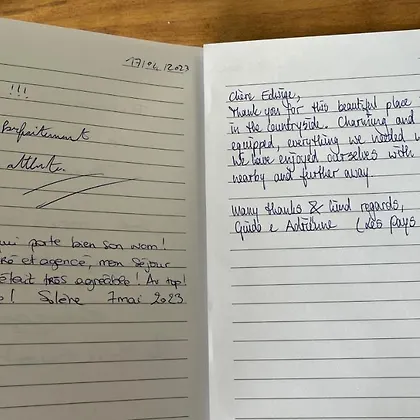 17/04/2023
!!!
Parfaitement
attent.
qui porte bien son nom!
ré et agencé, mon séjour
était très agréable! Au top!
e! Solène 7 mai 2023
Chère Edwige,
Thank you for this beautiful place
in the countryside. Charming and
equipped, everything we needed w
We have enjoyed ourselves with
nearby and further away
Many thanks & kind regards,
Guido e Adrienne (Les Pays